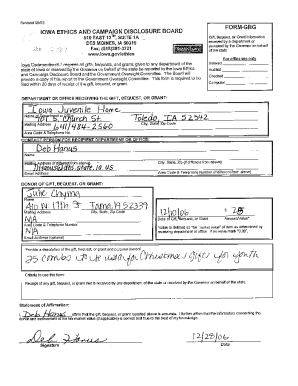 Revised 08/05
IOWA ETHICS AND CAMPAIGN DISCLOSURE BOARD
510 EAST 12th, SUITE 1A
DES MOINES, IA 50319
Fax (515) 281-3701
www.iowa.gov/ethics
FORM-GBG
Gift, Bequest, or Grant Information
received by a Department or
accepted by the Governor on behalf
of the state
For office use only
Indexed
Audited
Checked
Computer
Iowa Code section 8.7 requires all gifts, bequests, and grants given to any department of the
state of Iowa or received by the Governor on behalf of the state be reported to the Iowa Ethics
and Campaign Disclosure Board and the Government Oversight Committee. The Board will
provide a copy of this report to the Government Oversight Committee. This form is required to be
filed within 20 days of receipt of the gift, bequest, or grant.
DEPARTMENT OR OFFICE RECEIVING THE GIFT, BEQUEST, OR GRANT:
Iowa Juvenile Home
Name of Department or Office
701 S. Church St. Toledo, IA 52342
Mailing Address City, State, Zip Code
641/484-2560
Area Code & Telephone Number
CONTACT PERSON FOR RECIPIENT DEPARTMENT OR OFFICE:
Deb Hanus
Name
Mailing Address (if different from above) City, State, Zip (if different from above)
dhanus@dhs.state.ia.us
Email Address Area Code & Telephone Number (if different from above)
DONOR OF GIFT, BEQUEST, OR GRANT:
Julie Chyma
Name
410 W. 17th St Tama, IA 52339
Mailing Address City, State, Zip Code
NA
Area Code & Telephone Number
NA
Email Address (optional)
12/10/06 $
Date of Gift, Bequest, or Grant Amount/Value*
*Value is defined as "fair market value" of item as determined by
receiving department or office. If no value mark "0.00".
Provide a description of the gift, bequest, or grant and purpose thereof:
25 combs to be used for Christmas gifts for youth
Criteria to use this form:
Receipt of any gift, bequest, or grant to any department of the state or received by the Governor on behalf of the state.
Statement of Affirmation:
I Deb Hanus affirm that the gift, bequest, or grant identified above is accurate. I further affirm that the information concerning the
donor and estimate of the fair market value (if applicable) is correct and true to the best of my knowledge.
Deb Hanus 12/28/06
Signature Date